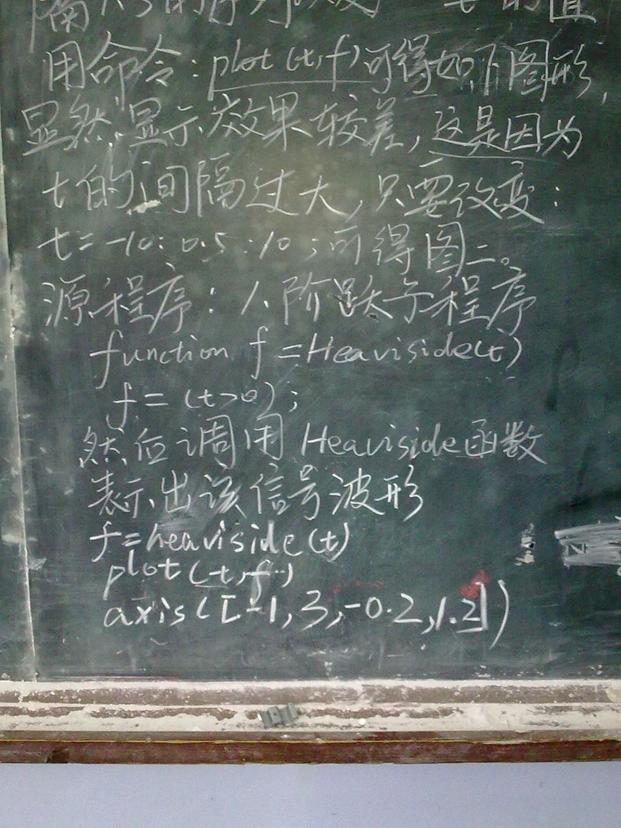 用命令：plot(t,f)可得如下图形，
显然，显示效果较差，这是因为
t的间隔过大，只要改变：
t=-10:0.5:10；可得图二。
源程序：1、阶跃子程序
function f=Heaviside(t)
f=(t>0);
然后调用Heaviside函数
表示出该信号波形
f=heaviside(t)
plot(t,f)
axis([-1,3,-0.2,1.2])